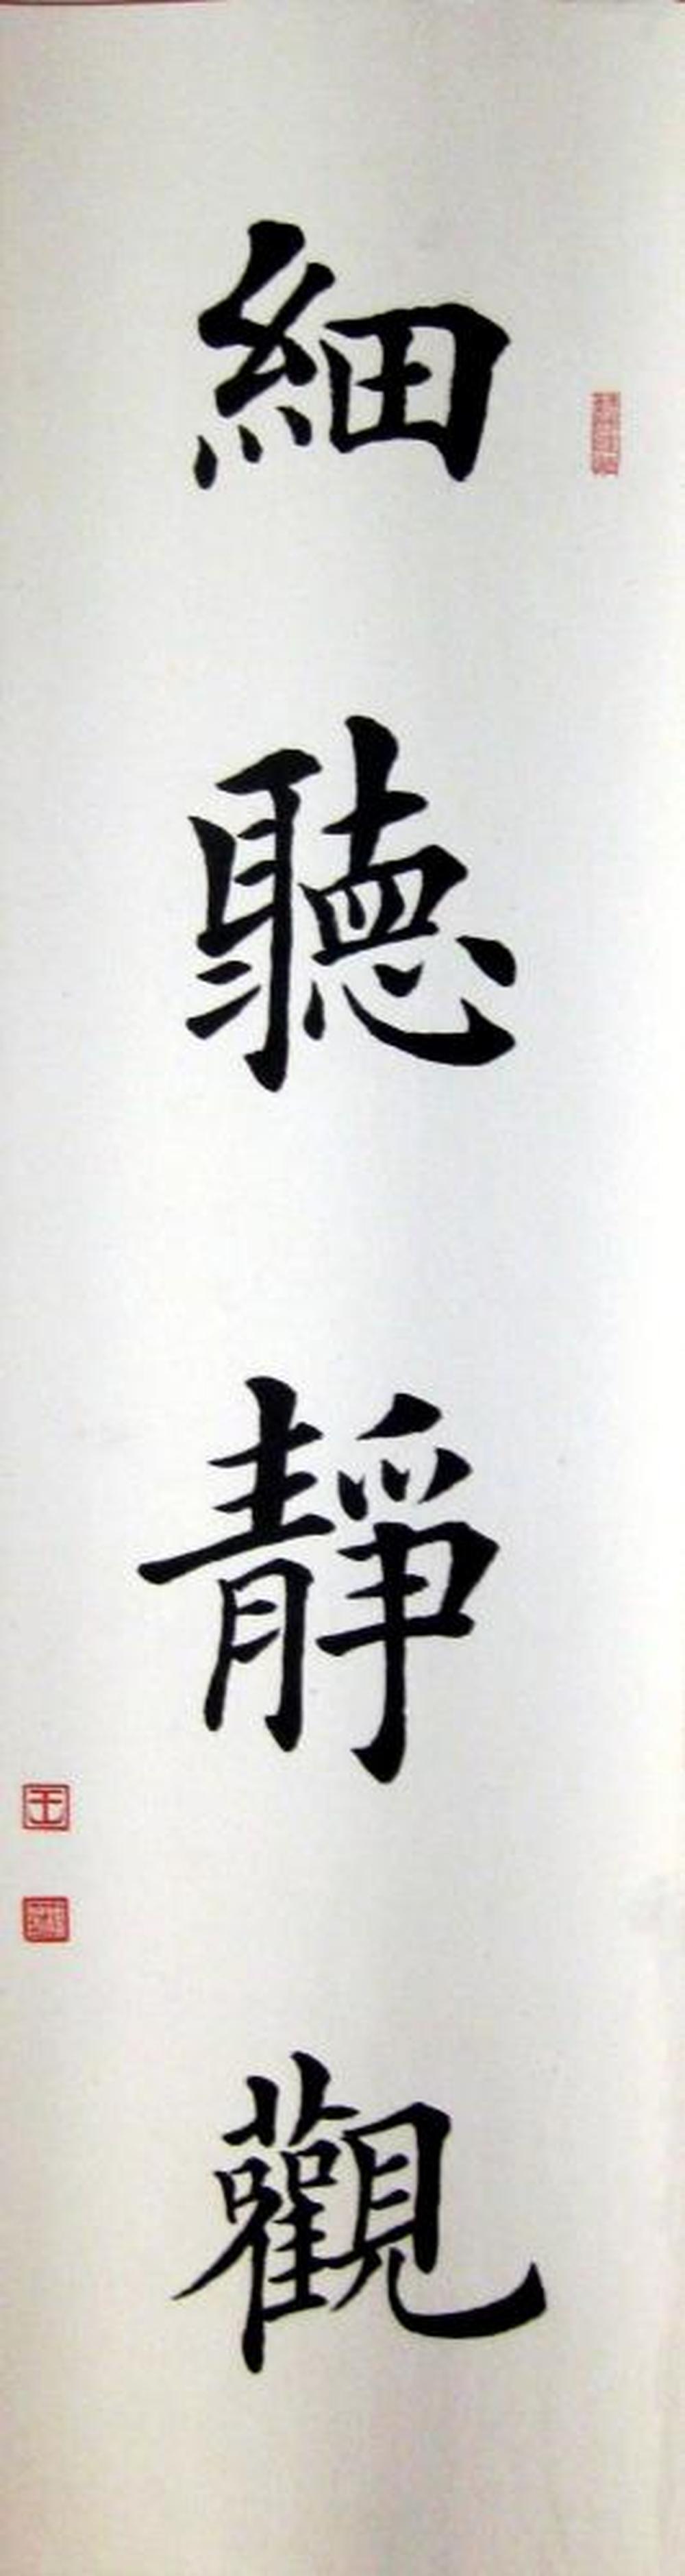 細聽靜觀
王